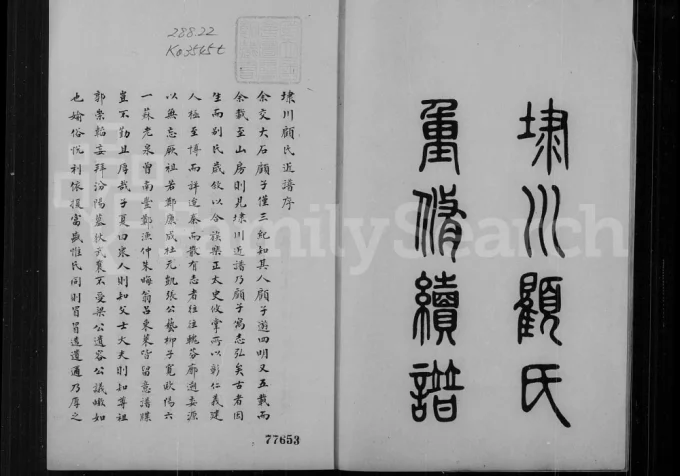 埭川顧氏
重修續譜
288.22
K03545t
埭川顧氏近譜序
余交大石顧子僅三紀知其人顧子遊四明又五載而
余載至山房則見埭川近譜乃顧子寓志弘矣古者因
生而别氏歲攸以合族樂正太史攸掌所以彰仁義建
人極至博而詳逮秦而散有志者往往
以無忘厥祖若鄭康成杜元凱張公藝柳子寬歐陽六
一蘇老泉曾南豐鄭漁仲朱晦翁呂東萊皆留意譜牒
豈不勤且厚哉子夏曰衆人則知父士大夫則知尊祖
郭崇韜妄拜汾陽墓狄武襄不受梁公遺容公議皦如
也媮俗悦利儌援富盛惟氏同則冒冒遠遺通乃厚之
77653
FamilySearch